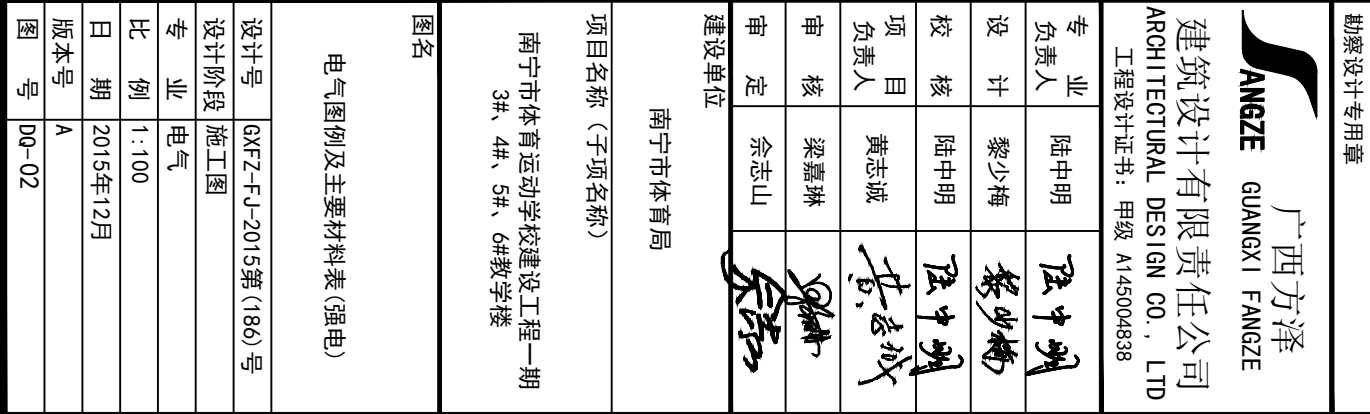 勘察设计专用章
ANGZE
广西方泽
GUANGXI FANGZE
建筑设计有限责任公司
ARCHITECTURAL DESIGN CO., LTD
工程设计证书：甲级 A145004838
专业负责人 陆中明 陆中明
设计 黎少梅 黎少梅
校核 陆中明 陆中明
项目负责人 黄志诚 黄志诚
审核 梁嘉琳
审定 佘志山
建设单位
南宁市体育局
项目名称（子项名称）
南宁市体育运动学校建设工程一期
3#、4#、5#、6#教学楼
图名
电气图例及主要材料表(强电)
设计号 GXFZ-FJ-2015第(186)号
设计阶段 施工图
专业 电气
比例 1:100
日期 2015年12月
版本号 A
图号 DQ-02